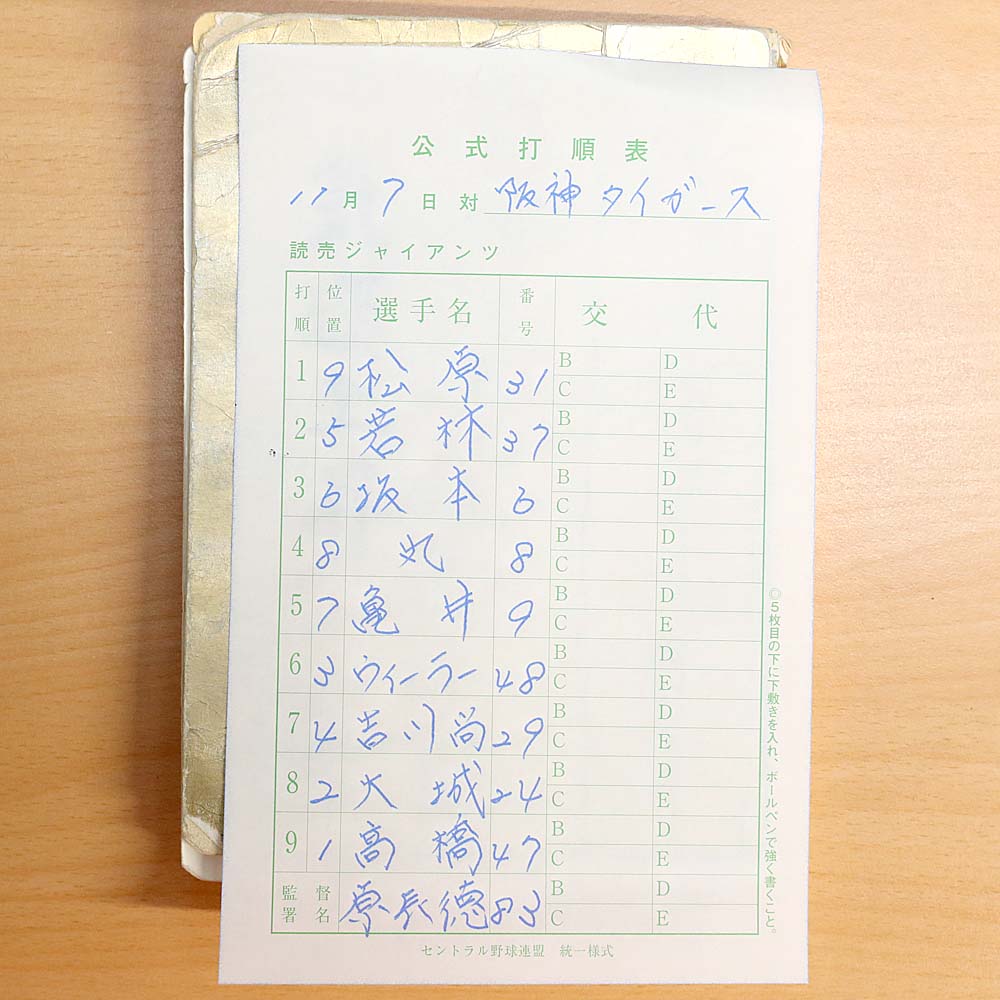 公式打順表
11月7日対 阪神タイガース
読売ジャイアンツ
打順 位置 選手名 番号 交代
1 9 松原 31 B D C E
2 5 若林 37 B D C E
3 6 坂本 6 B D C E
4 8 丸 8 B D C E
5 7 亀井 9 B D C E
6 3 ウィーラー 48 B D C E
7 4 吉川尚 29 B D C E
8 2 大城 24 B D C E
9 1 高橋 47 B D C E
監督署名 原辰徳 83 B D C E
◎5枚目の下に下敷きを入れ、ボールペンで強く書くこと。
セントラル野球連盟 統一様式